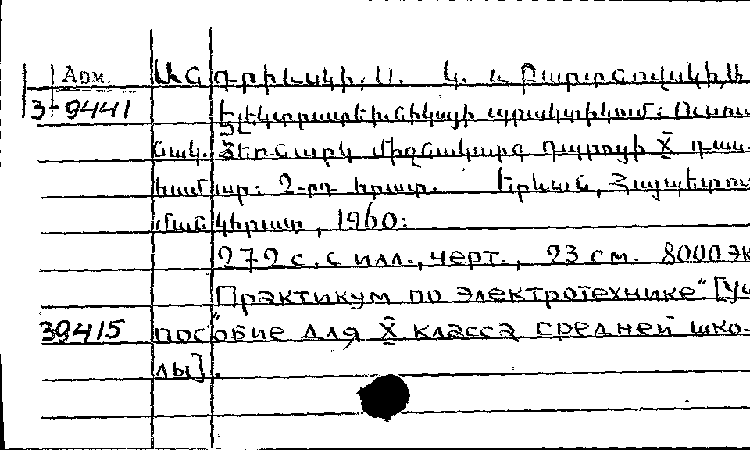 Арм. Անդրիևսկի, Ս. Կ. և
3-9441 Էլեկտրատեխնիկայի պրակտիկում: Ուսում
նակ. ձեռնարկ միջնակարգ դպրոցի X դաս.
համար: 2-րդ հրատ. Երևան, Հայպետուս
մանկհրատ, 1960:
272 с. с илл., черт., 23 см. 8000 эк
"Практикум по электротехнике" [Уч
39415 пособие для X класса средней шко-
лы].